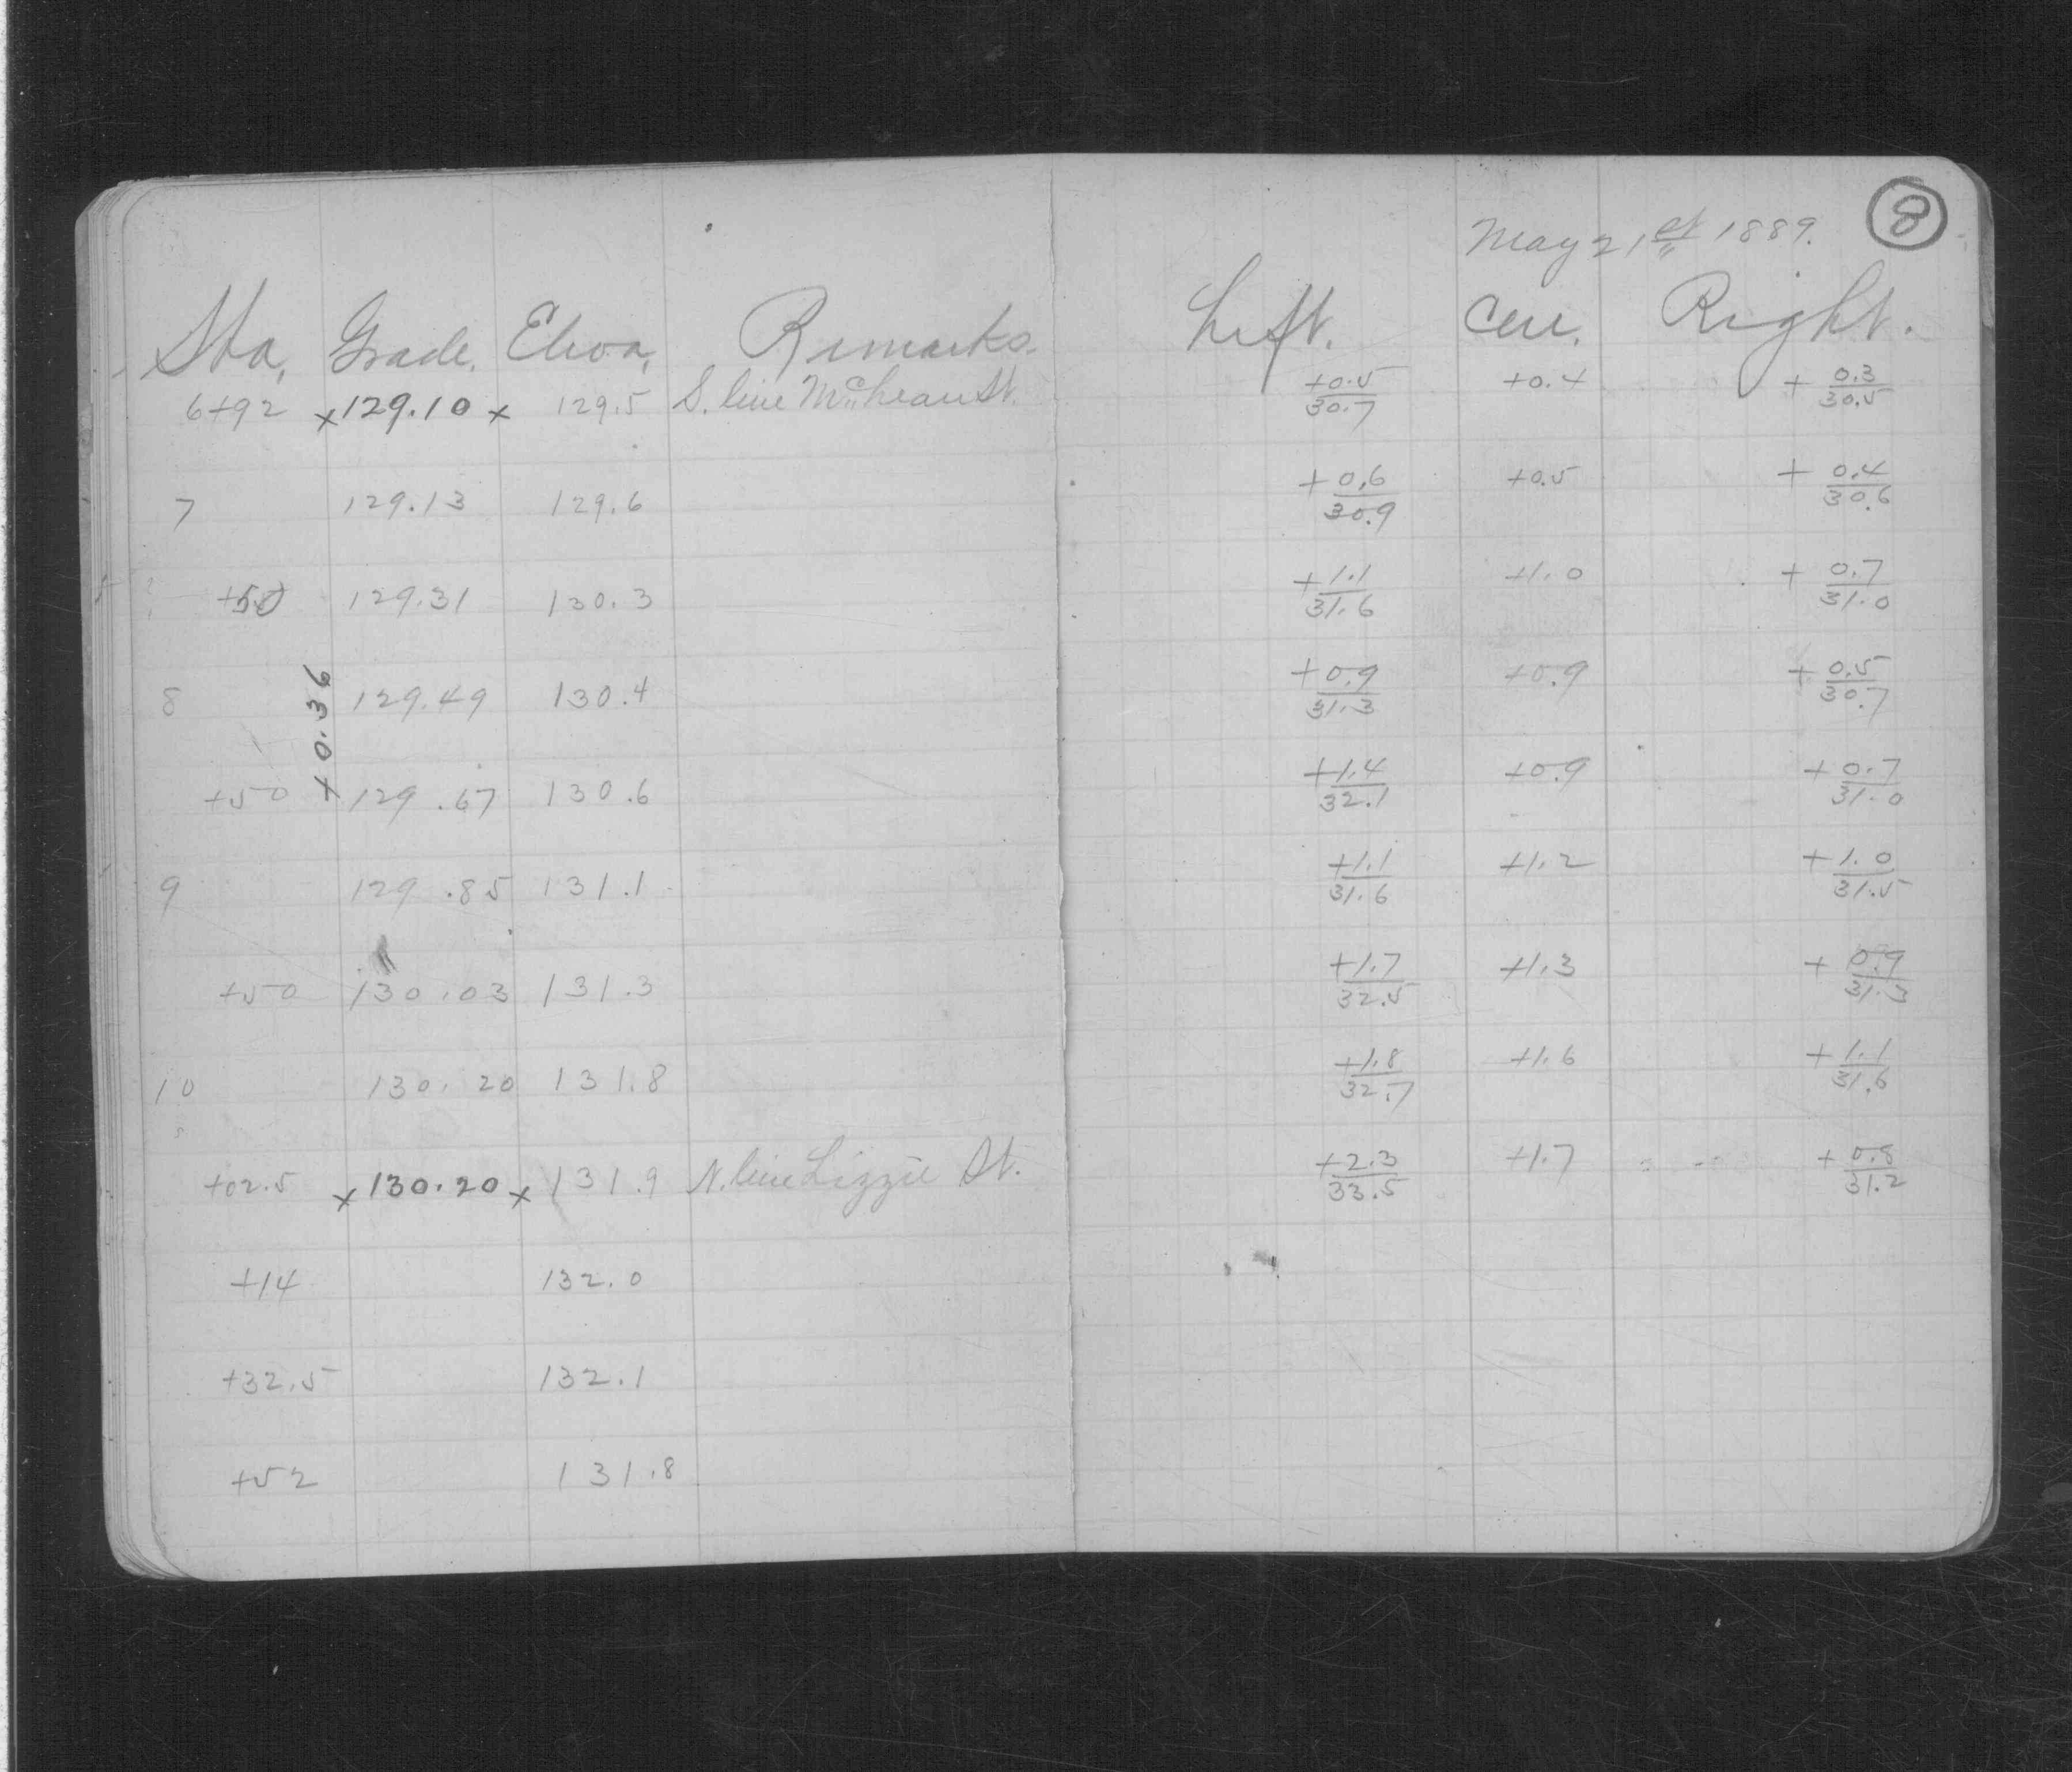 8
May 21st 1889.
Sta. Grade. Eleva. Remarks. Left. Cen. Right.
6+92 x129.10x 129.5 S. line McLean St. +0.5/30.7 +0.4 +0.3/30.5
7 129.13 129.6 +0.6/30.9 +0.5 +0.4/30.6
+50 129.31 130.3 +1.1/31.6 +1.0 +0.7/31.0
8 129.49 130.4 +0.9/31.3 +0.9 +0.5/30.7
+0.36
+50 129.67 130.6 +1.4/32.1 +0.9 +0.7/31.0
9 129.85 131.1 +1.1/31.6 +1.2 +1.0/31.5
+50 130.03 131.3 +1.7/32.5 +1.3 +0.9/31.3
10 130.20 131.8 +1.8/32.7 +1.6 +1.1/31.6
+02.5 x130.20x 131.9 N. line Lizzie St. +2.3/33.5 +1.7 +0.8/31.2
+14 132.0
+32.5 132.1
+52 131.8